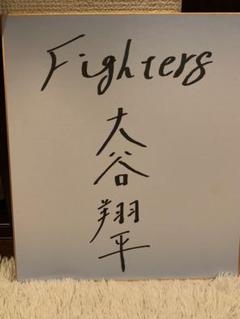 Fighters
大谷翔平